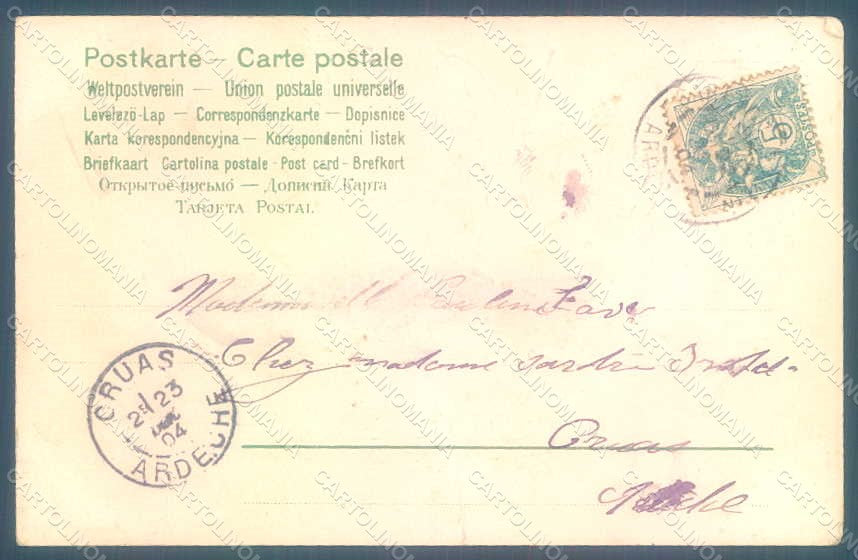 Postkarte – Carte postale
Weltpostverein – Union postale universelle
Levelező-Lap – Correspondenzkarte – Dopisnice
Karta korespondencyjna – Korespondenční listek
Briefkaart Cartolina postale - Post card - Brefkort
Открытое письмо – Дописна Карта
TARJETA POSTAL
Mademoiselle
Chez madame
Cruas
Ardèche
CRUAS
23
04
ARDECHE
CARTOLINOMANIA